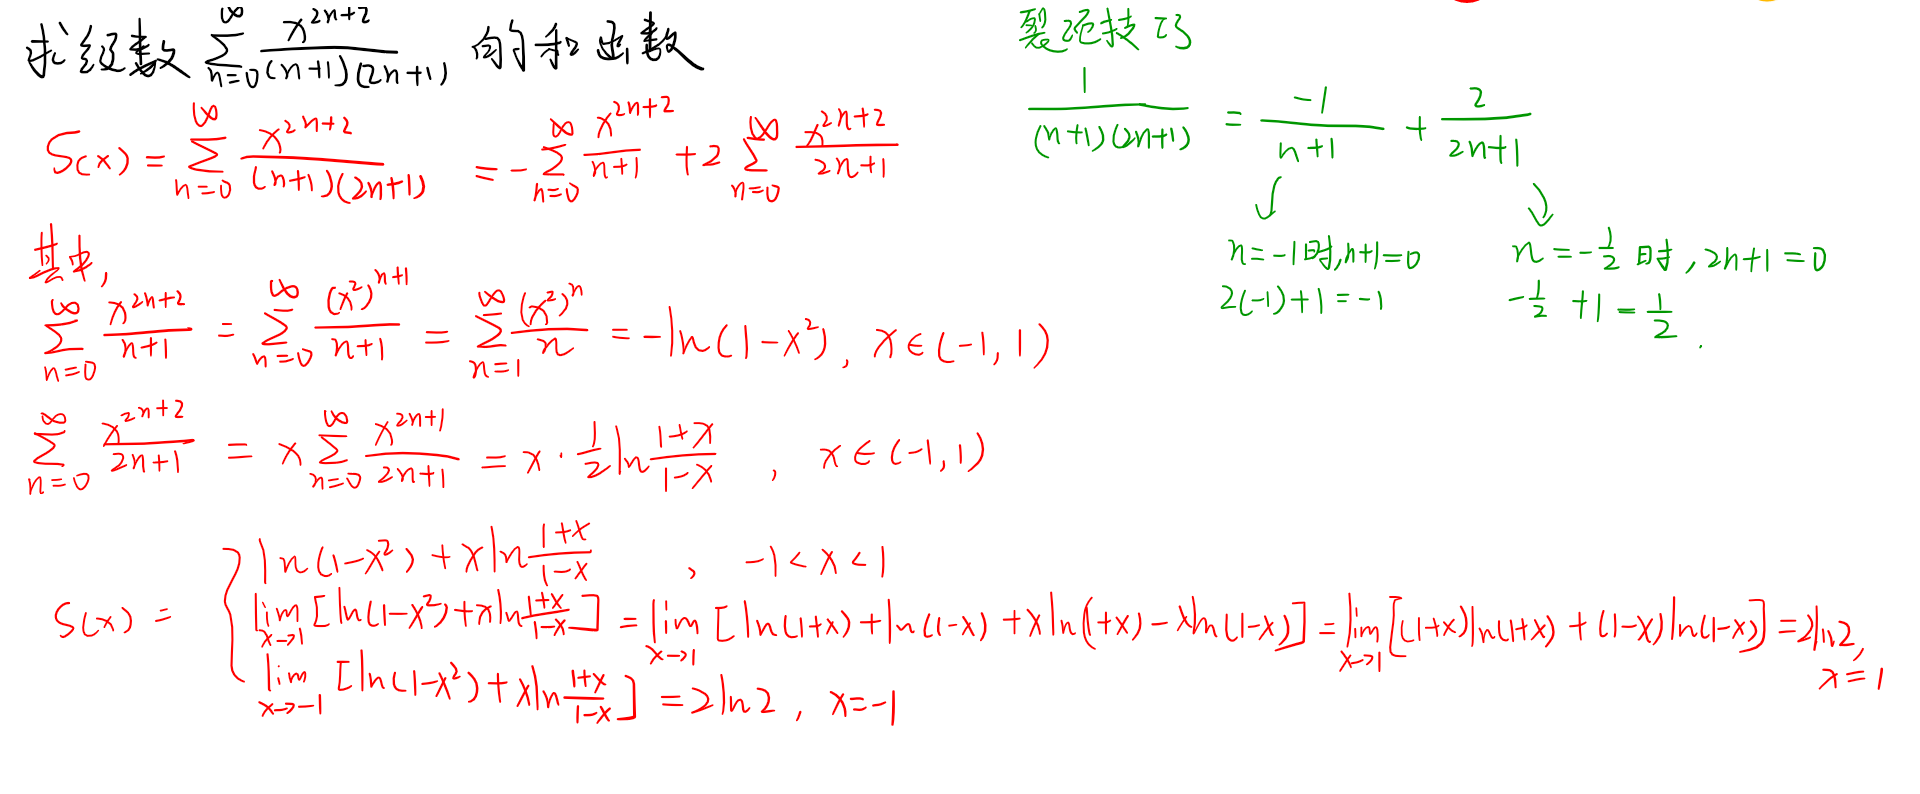 求级数 \sum_{n=0}^{\infty} \frac{x^{2n+2}}{(n+1)(2n+1)} 的和函数
S(x) = \sum_{n=0}^{\infty} \frac{x^{2n+2}}{(n+1)(2n+1)} = -\sum_{n=0}^{\infty} \frac{x^{2n+2}}{n+1} + 2\sum_{n=0}^{\infty} \frac{x^{2n+2}}{2n+1}
其中,
\sum_{n=0}^{\infty} \frac{x^{2n+2}}{n+1} = \sum_{n=0}^{\infty} \frac{(x^2)^{n+1}}{n+1} = \sum_{n=1}^{\infty} \frac{(x^2)^n}{n} = -ln(1-x^2), x∈(-1,1)
\sum_{n=0}^{\infty} \frac{x^{2n+2}}{2n+1} = x\sum_{n=0}^{\infty} \frac{x^{2n+1}}{2n+1} = x·\frac{1}{2}ln\frac{1+x}{1-x}, x∈(-1,1)
S(x) = { ln(1-x^2) + xln\frac{1+x}{1-x}, -1<x<1
\lim_{x→1}[ln(1-x^2)+xln\frac{1+x}{1-x}] = \lim_{x→1}[ln(1+x)+ln(1-x)+xln(1+x)-xln(1-x)] = \lim_{x→1}[(1+x)ln(1+x)+(1-x)ln(1-x)] = 2ln2, x=1
\lim_{x→-1}[ln(1-x^2)+xln\frac{1+x}{1-x}] = 2ln2, x=-1
裂项技巧
\frac{1}{(n+1)(2n+1)} = \frac{-1}{n+1} + \frac{2}{2n+1}
n=-1时,n+1=0
2(-1)+1=-1
n=-\frac{1}{2}时,2n+1=0
-\frac{1}{2}+1=\frac{1}{2}.